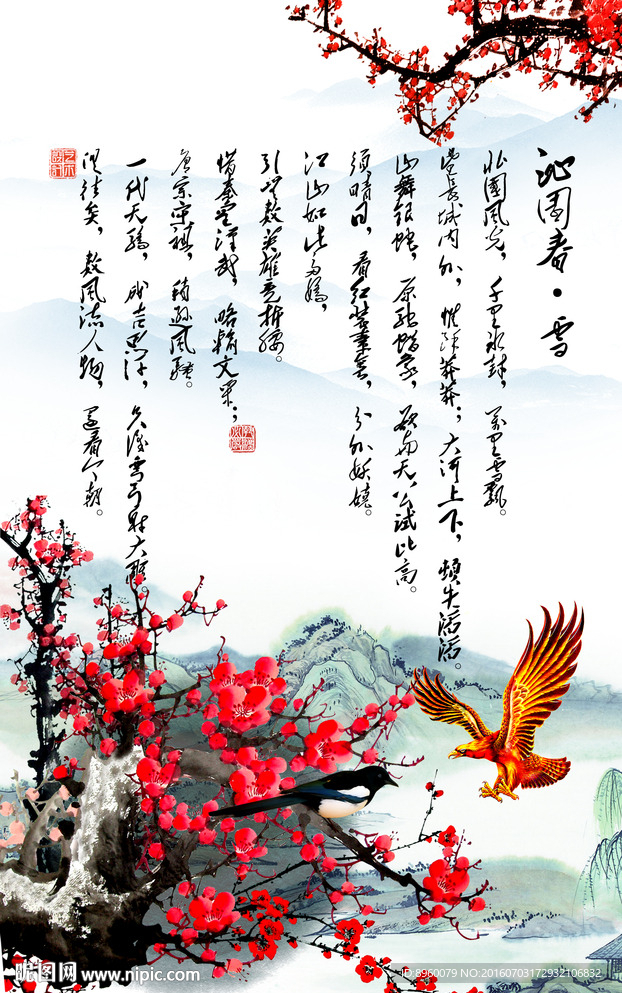 沁園春·雪
北國風光，千里冰封，萬里雪飄。
望長城内外，惟餘莽莽；大河上下，頓失滔滔。
山舞銀蛇，原馳蠟象，欲與天公試比高。
須晴日，看紅裝素裹，分外妖嬈。
江山如此多嬌，
引無數英雄竞折腰。
惜秦皇漢武，略輸文采；
唐宗宋祖，稍遜風騷。
一代天驕，成吉思汗，只識彎弓射大雕。
俱往矣，數風流人物，還看今朝。
昵图网 www.nipic.com
ID:8960079 NO:20160703172932106832